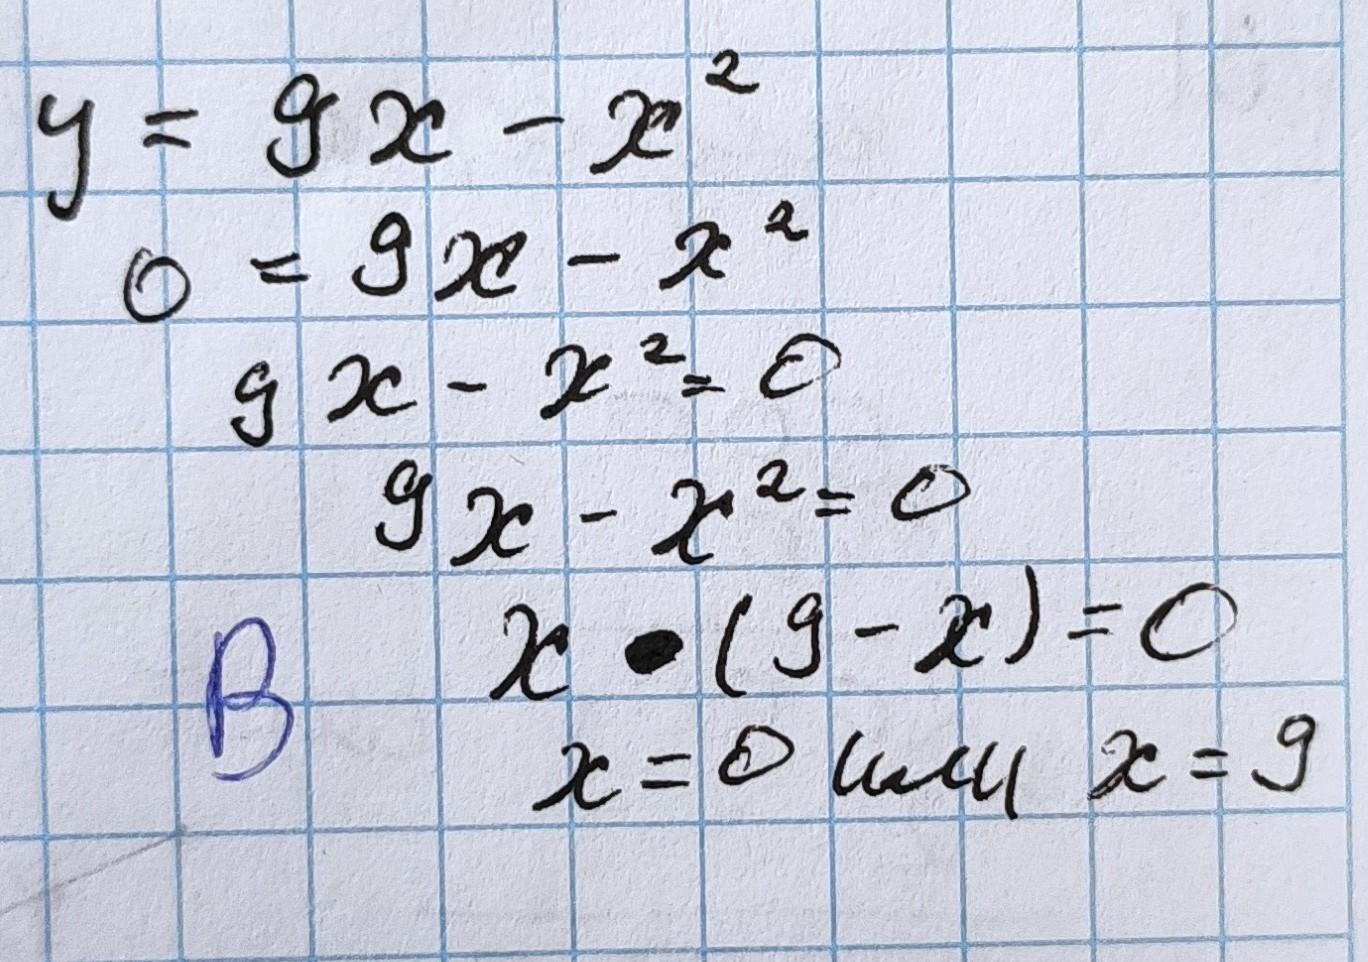 y = 9x - x²
0 = 9x - x²
9x - x² = 0
9x - x² = 0
B x • (9 - x) = 0
x = 0 или x = 9